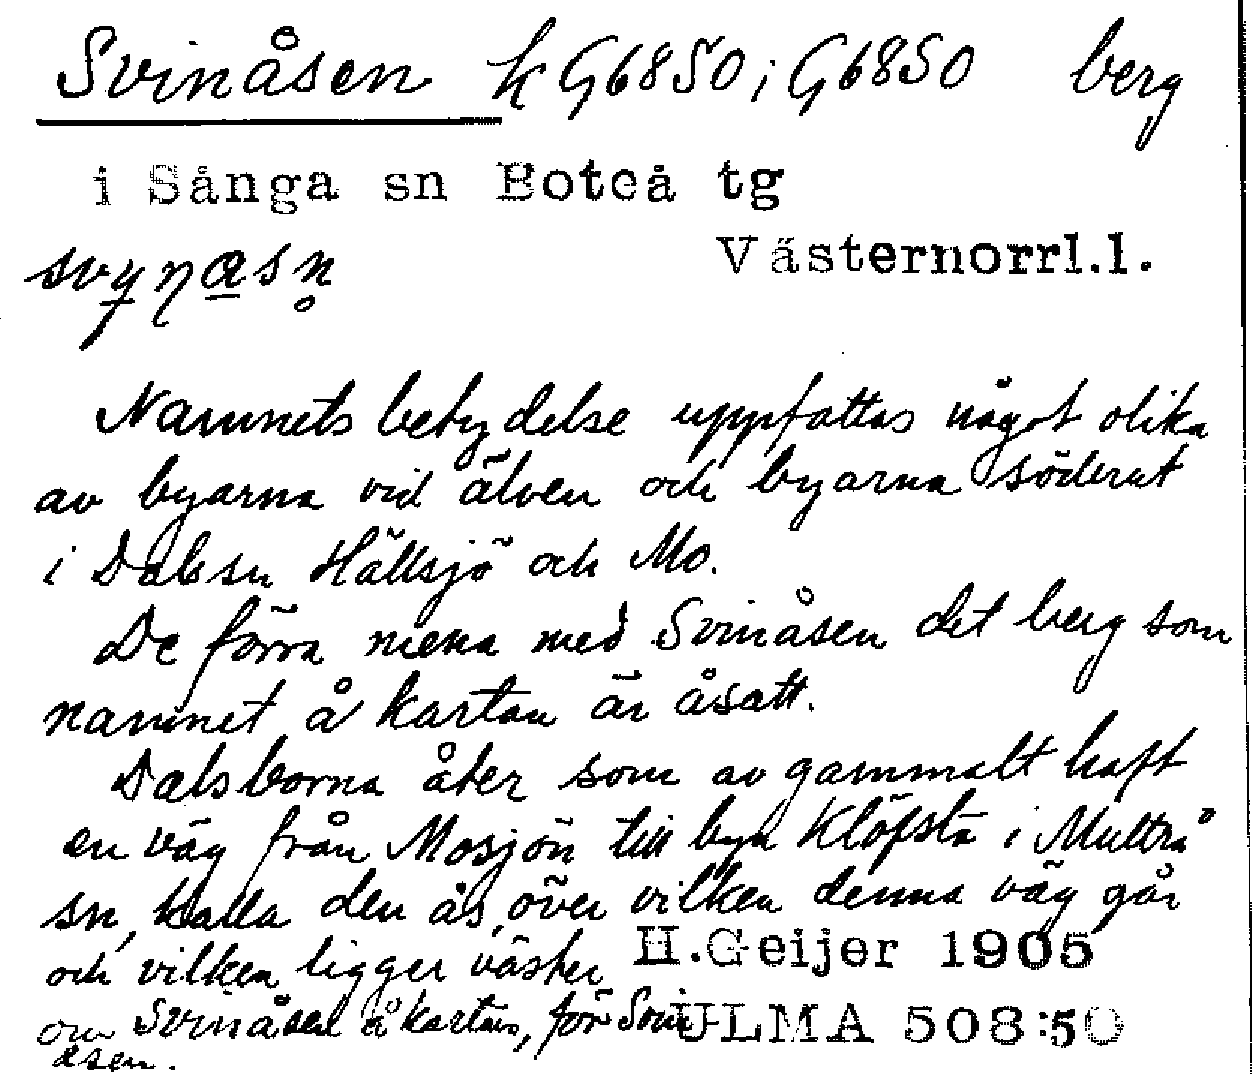 Svinåsen k G6850; G6850 berg
i Sånga sn Boteå tg
Västernorrl.l.
Namnets betydelse uppfattas något olika
av byarna vid älven och byarna söderut
i Dals sn Hällsjö och Mo.
De förra mena med Svinåsen det berg som
namnet å kartan är åsatt.
Dalsborna åter som av gammalt haft
en väg från Mosjön till byn Klöfsta i Multrå
sn, kalla den ås, över vilken denna väg går
och vilken ligger väster
om Svinåsen å kartan, för Svin-
åsen.
H.Geijer 1905
ULMA 508:50